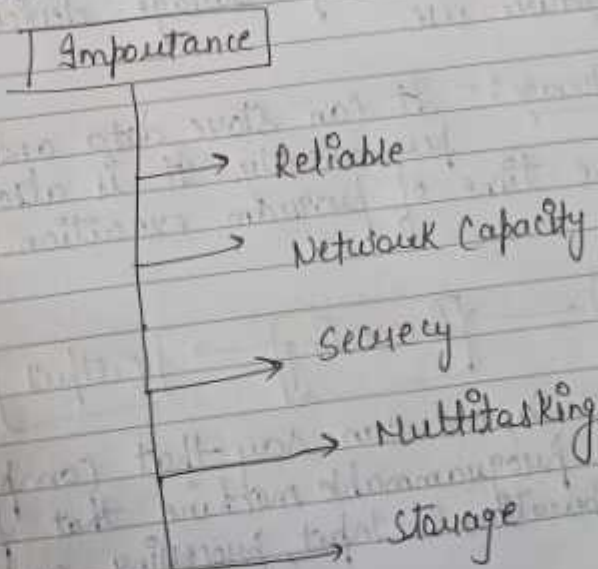 Importance
Reliable
Network Capacity
Secrecy
Multitasking
Storage